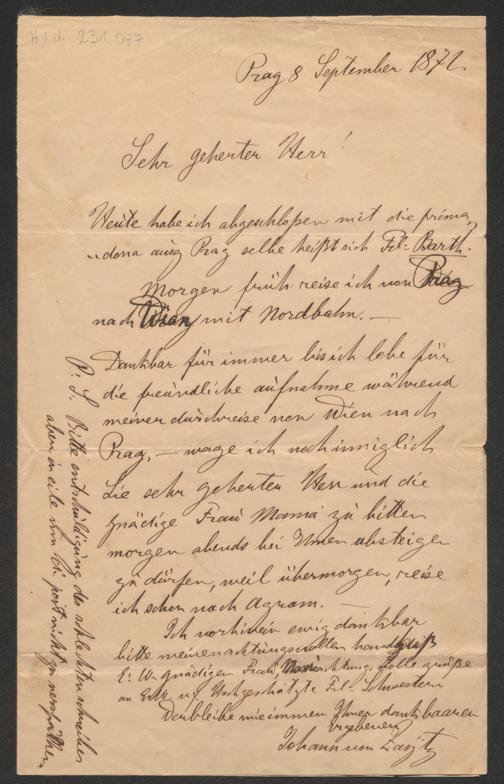 H.I.N. 231.077
Prag 8 September 1872
Sehr geherter Herr!
Heute habe ich abgeschloßen mit die prima
dona aus Prag selbe heißt sich Frl. Barth.
Morgen früh reise ich von Prag
nach Wien mit Nordbahn. —
Dankbar für immer bis ich lebe für
die freundliche aufnahme während
meiner durchreise von Wien nach
Prag, — wage ich noch inniglich
Sie sehr geherten Herr und die
gnädige Frau Mama zu bitten
morgen abends bei Ihnen absteigen
zu dürfen, weil übermorgen, reise
ich schon nach Agram. —
Ich vorhinein ewig dankbar
bitte meinen achtungsvollen handkuß
E. W. gnädigen Frau, achtungsvolle grüße
an Hochgeschätzte Frl. Schwestern
Verbleibe wie immer Ihner dankbaaren
Ergebener
Johann von
P. S. Bitte entschuldigung des schlechten schreibes
aber in eile um die post nicht zu verspäthen